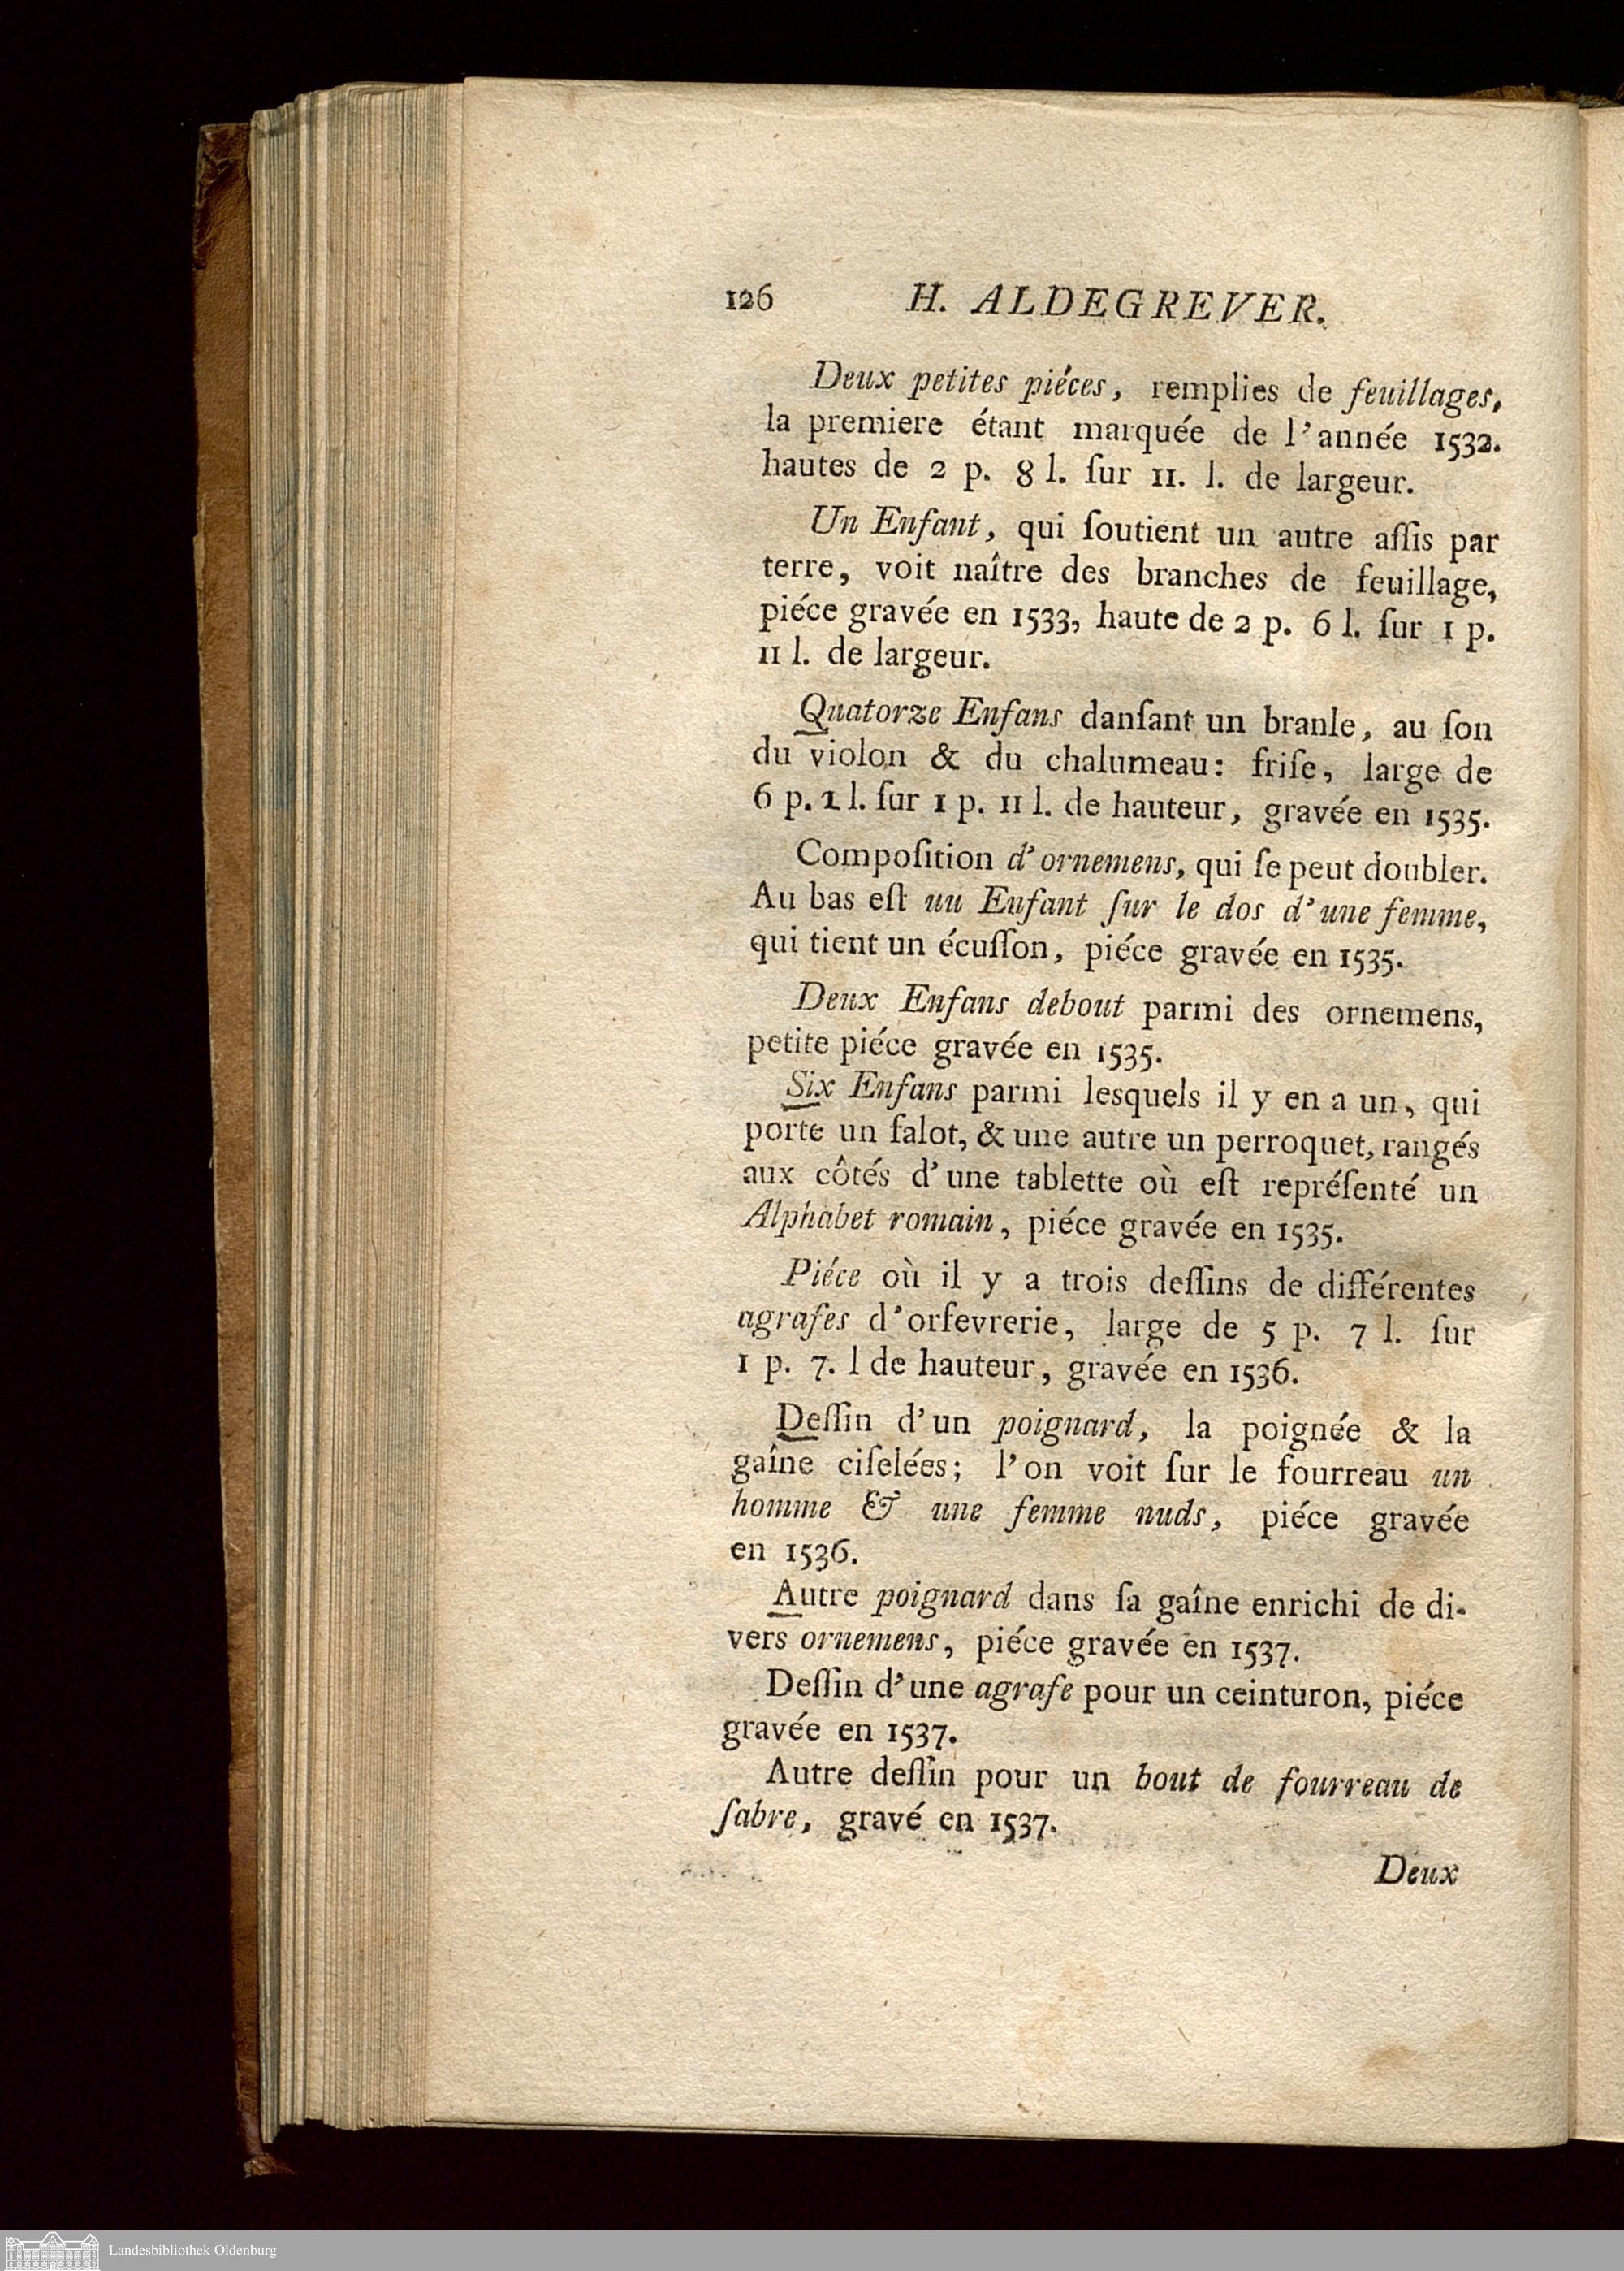 126 H. ALDEGREVER.
Deux petites piéces, remplies de feuillages,
la premiere étant marquée de l'année 1532.
hautes de 2 p. 8 l. ſur 11. l. de largeur.
Un Enfant, qui ſoutient un autre aſſis par
terre, voit naître des branches de feuillage,
piéce gravée en 1533, haute de 2 p. 6 l. ſur 1 p.
11 l. de largeur.
Quatorze Enfans danſant un branle, au ſon
du violon & du chalumeau: friſe, large de
6 p. 1 l. ſur 1 p. 11 l. de hauteur, gravée en 1535.
Compoſition d'ornemens, qui ſe peut doubler.
Au bas eſt uu Enfant ſur le dos d'une femme,
qui tient un écuſſon, piéce gravée en 1535.
Deux Enfans debout parmi des ornemens,
petite piéce gravée en 1535.
Six Enfans parmi lesquels il y en a un, qui
porte un falot, & une autre un perroquet, rangés
aux côtés d'une tablette où eſt repréſenté un
Alphabet romain, piéce gravée en 1535.
Piéce où il y a trois deſſins de différentes
agrafes d'orfevrerie, large de 5 p. 7 l. ſur
1 p. 7. l de hauteur, gravée en 1536.
Deſſin d'un poignard, la poignée & la
gaîne ciſelées; l'on voit ſur le fourreau un
homme & une femme nuds, piéce gravée
en 1536.
Autre poignard dans ſa gaîne enrichi de di-
vers ornemens, piéce gravée en 1537.
Deſſin d'une agrafe pour un ceinturon, piéce
gravée en 1537.
Autre deſſin pour un bout de fourreau de
ſabre, gravé en 1537.
Deux
Landesbibliothek Oldenburg